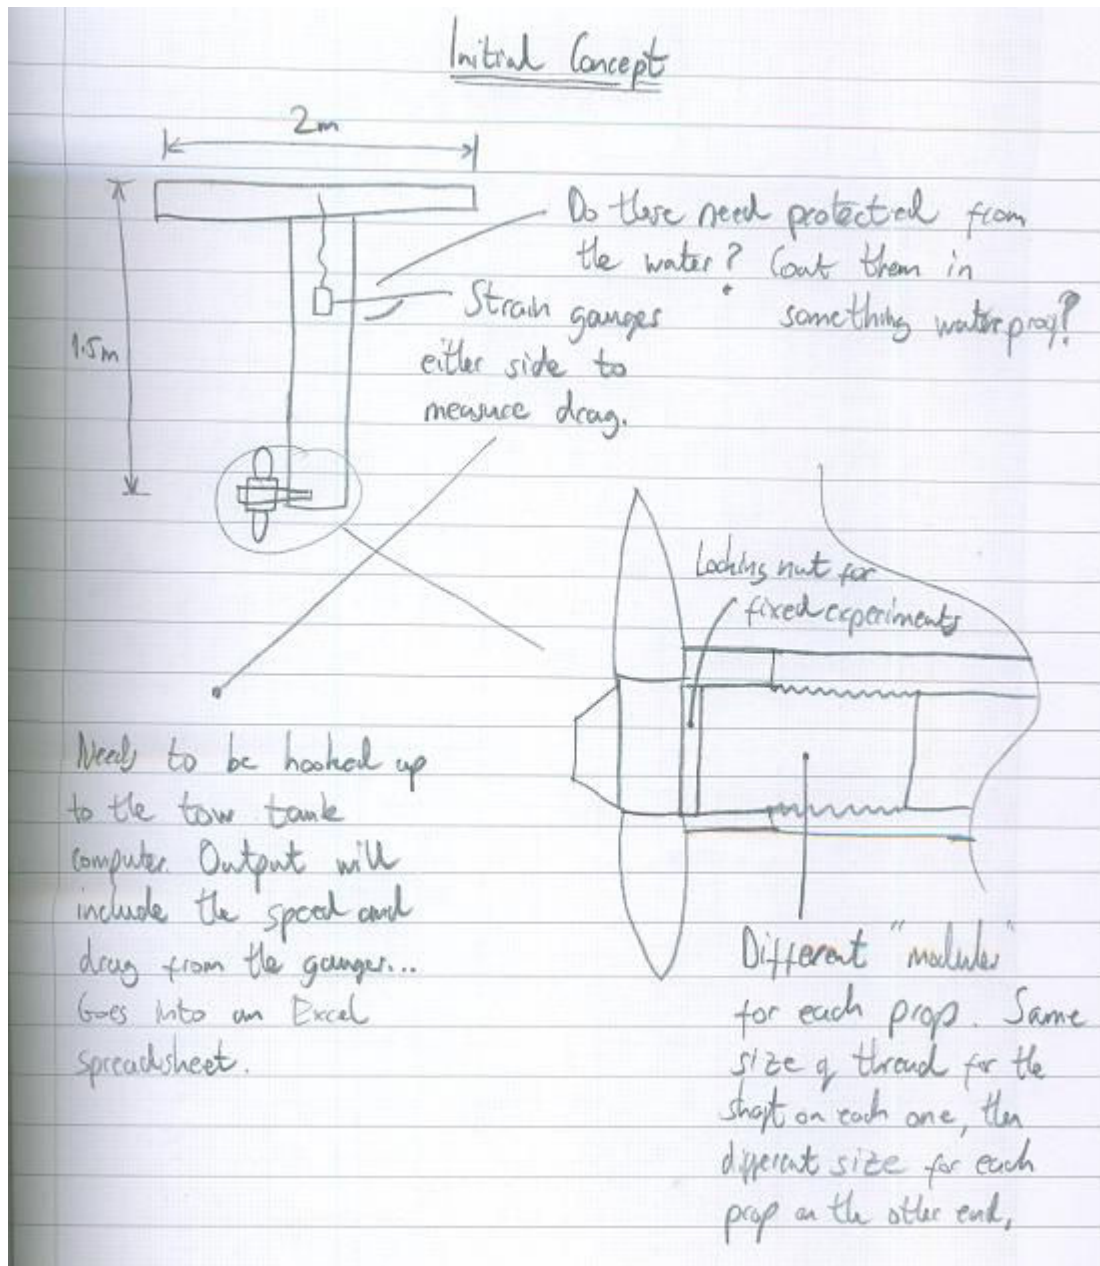 Initial Concept
2m
1.5m
Do these need protected from
the water? Coat them in
something waterproof?
Strain gauges
either side to
measure drag.
Locking nut for
fixed experiments
Needs to be hooked up
to the tow tank
computer. Output will
include the speed and
drag from the gauges...
Goes into an Excel
spreadsheet.
Different "modules"
for each prop. Same
size of thread for the
shaft on each one, then
different size for each
prop on the other end,